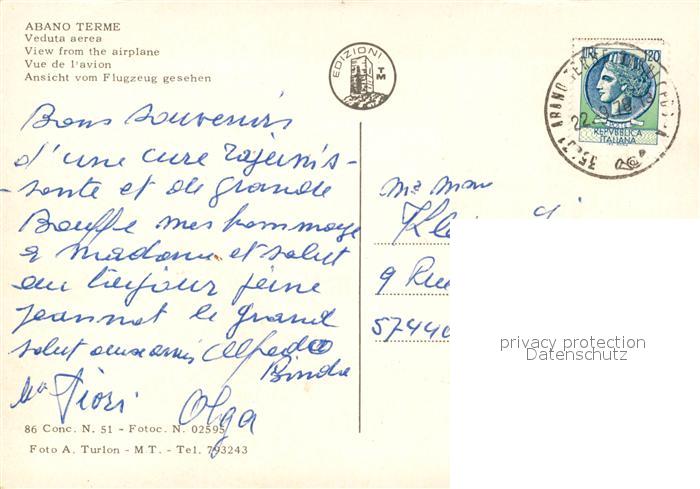 ABANO TERME
Veduta aerea
View from the airplane
Vue de l'avion
Ansicht vom Flugzeug gesehen
EDIZIONI
TM
120
REPVBBLICA
ITALIANA
22.9.78
35031 ABANO TERME
Bons souvenirs
d'une cure rajeunis-
-sante et de grande
Bouffe mes hommage
a madame et salut
au toujour jeune
jeannot le grand
salut aux amis Alfredo
Binda
Fiori
Olga
9 Rue
57440
privacy protection
Datenschutz
86 Conc. N. 51 - Fotoc. N. 02595
Foto A. Turlon - M T. - Tel. 793243